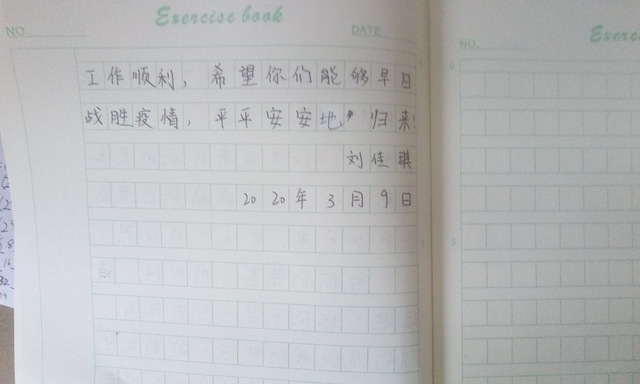 Exercise book
NO.
DATE
工作顺利，希望你们能够早日
战胜疫情，平平安安地归来！
刘佳琪
2020年3月9日
NO.